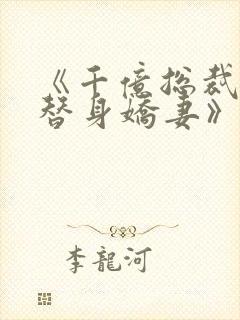 《千億总裁
替身嬌妻》
李龍河